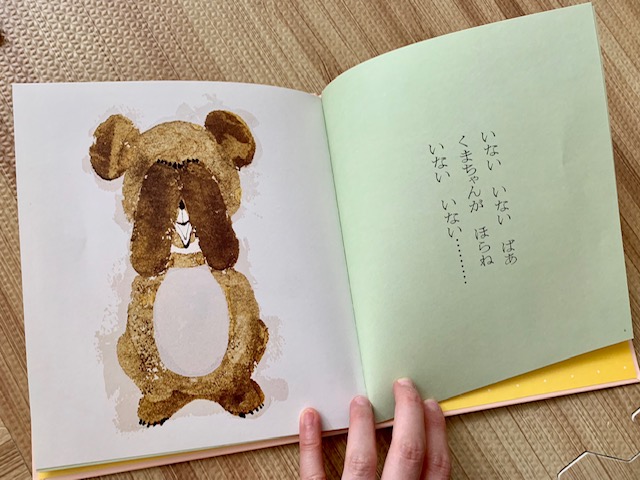 いない　いない　ばあ
くまちゃんが　ほらね
いない　いない………